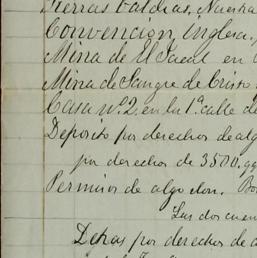 Tierras baldias, Nuestra
Convencion inglesa,
Mina de El Jacal en
Mina de Sangre de Cristo
Casa nº 2. en la 1ª calle de
Deposito por derechos de alg
por derechos de 3500. qq
Permisos de algodon. Bo
Las dos cuen
Detras por derechos de a